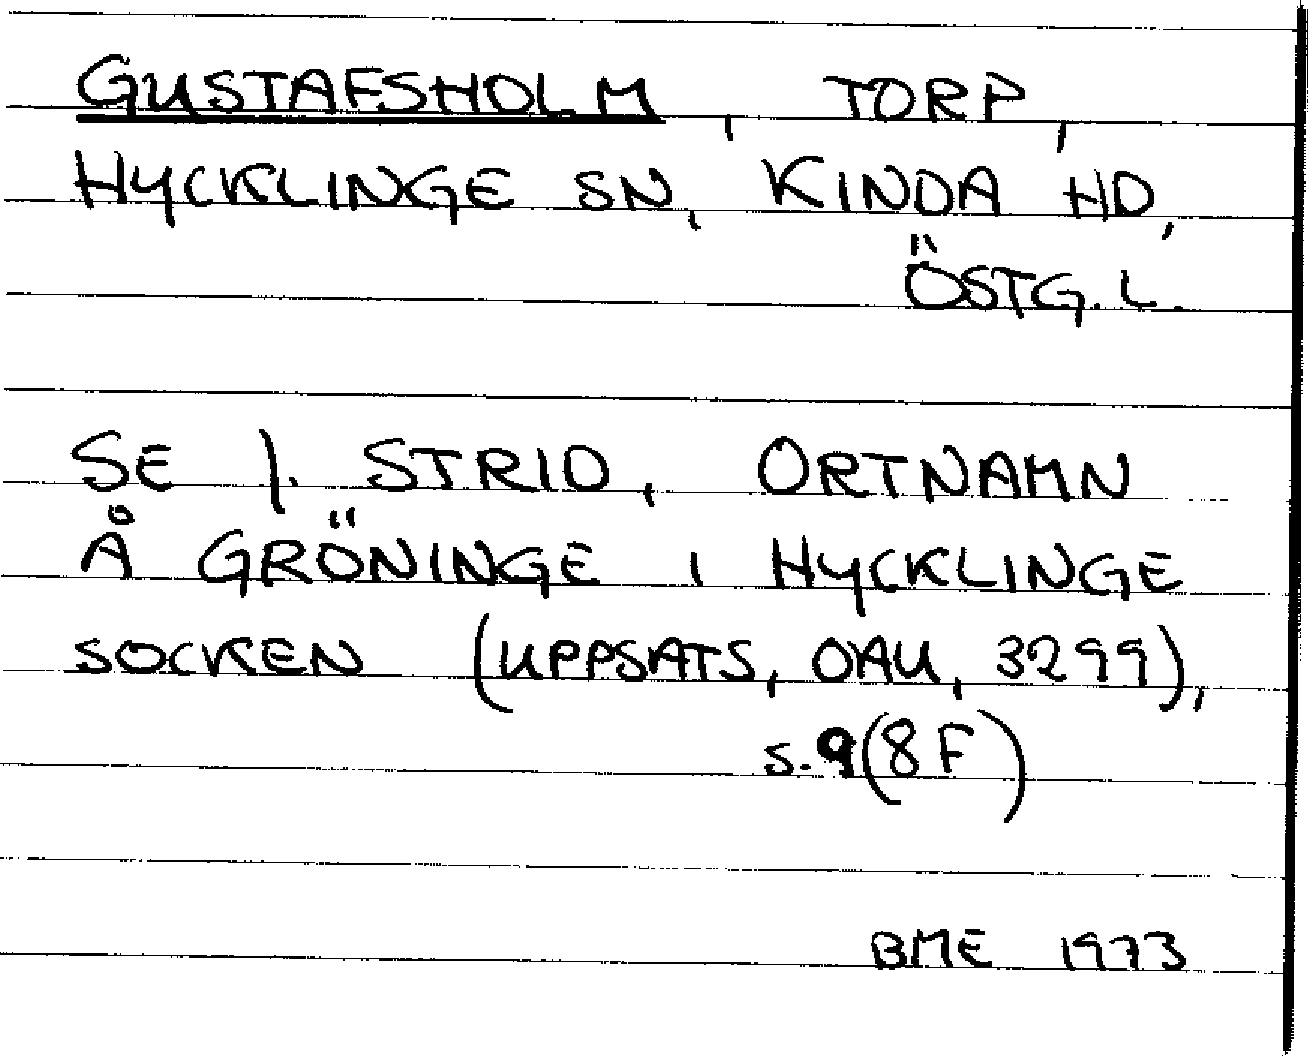 GUSTAFSHOLM, TORP,
HYCKLINGE SN, KINDA HD,
ÖSTG. L.
SE J. STRID, ORTNAMN
Å GRÖNINGE I HYCKLINGE
SOCKEN (UPPSATS, OAU, 3299),
S. 9 (8 F)
BME 1973